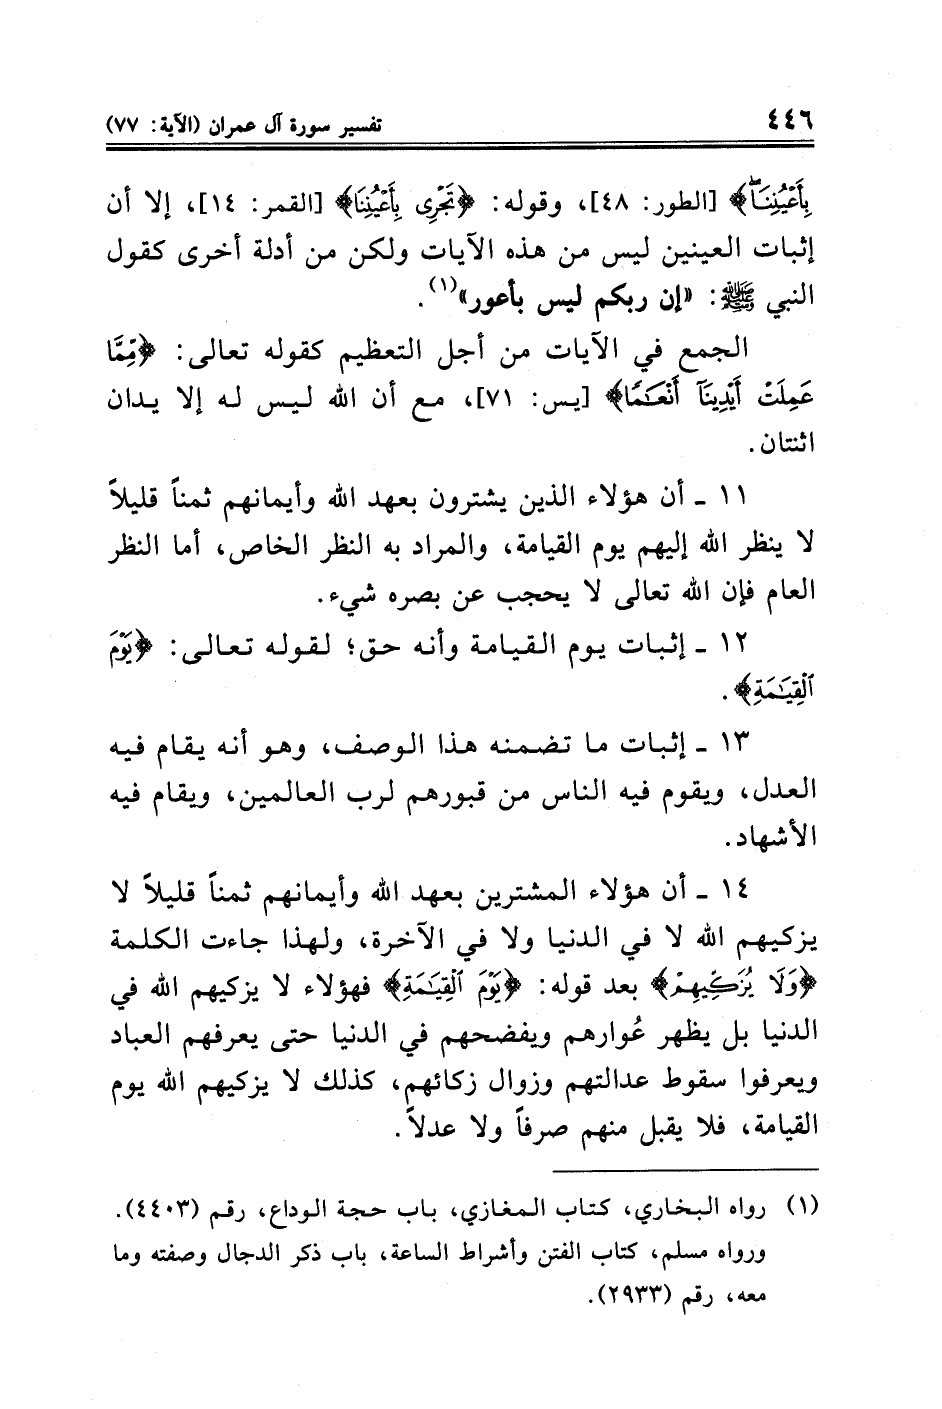 ٤٤٦ تفسير سورة آل عمران (الآية: ٧٧)
بِأَعْيُنِنَاۖ﴾ [الطور: ٤٨]، وقوله: ﴿تَجْرِى بِأَعْيُنِنَا﴾ [القمر: ١٤]، إلا أن
إثبات العينين ليس من هذه الآيات ولكن من أدلة أخرى كقول
النبي ﷺ: «إن ربكم ليس بأعور»(١).
الجمع في الآيات من أجل التعظيم كقوله تعالى: ﴿مِّمَّا
عَمِلَتْ أَيْدِينَآ أَنْعَـٰمًا﴾ [يس: ٧١]، مع أن الله ليس له إلا يدان
اثنتان.
١١ ـ أن هؤلاء الذين يشترون بعهد الله وأيمانهم ثمناً قليلاً
لا ينظر الله إليهم يوم القيامة، والمراد به النظر الخاص، أما النظر
العام فإن الله تعالى لا يحجب عن بصره شيء.
١٢ ـ إثبات يوم القيامة وأنه حق؛ لقوله تعالى: ﴿يَوْمَ
ٱلْقِيَـٰمَةِ﴾.
١٣ ـ إثبات ما تضمنه هذا الوصف، وهو أنه يقام فيه
العدل، ويقوم فيه الناس من قبورهم لرب العالمين، ويقام فيه
الأشهاد.
١٤ ـ أن هؤلاء المشترين بعهد الله وأيمانهم ثمناً قليلاً لا
يزكيهم الله لا في الدنيا ولا في الآخرة، ولهذا جاءت الكلمة
﴿وَلَا يُزَكِّيهِمْ﴾ بعد قوله: ﴿يَوْمَ ٱلْقِيَـٰمَةِ﴾ فهؤلاء لا يزكيهم الله في
الدنيا بل يظهر عُوارهم ويفضحهم في الدنيا حتى يعرفهم العباد
ويعرفوا سقوط عدالتهم وزوال زكائهم، كذلك لا يزكيهم الله يوم
القيامة، فلا يقبل منهم صرفاً ولا عدلاً.
(١) رواه البخاري، كتاب المغازي، باب حجة الوداع، رقم (٤٤٠٣).
ورواه مسلم، كتاب الفتن وأشراط الساعة، باب ذكر الدجال وصفته وما
معه، رقم (٢٩٣٣).